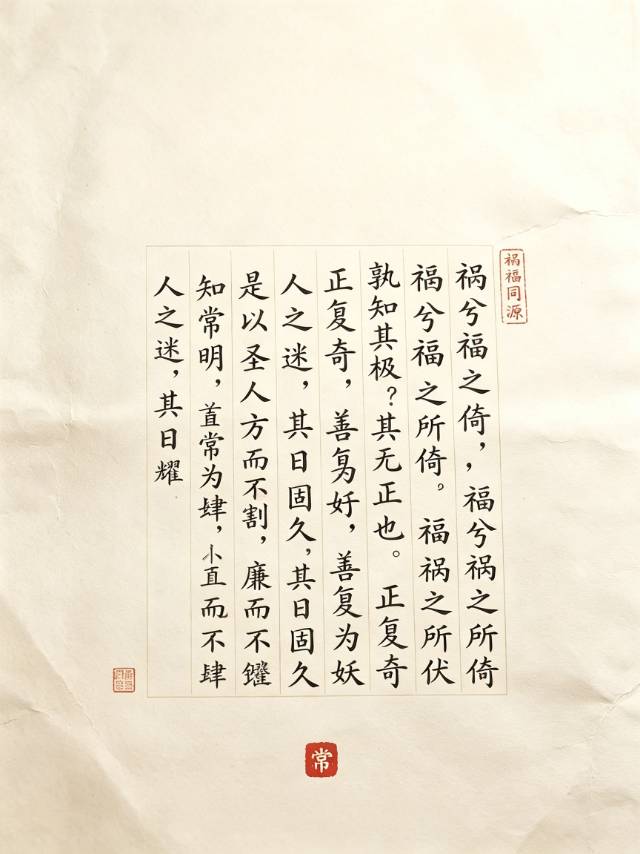 祸福同源
祸兮福之倚，，福兮祸之所倚
福兮福之所倚。福祸之所伏
孰知其极？其无正也。正复奇
正复奇，善，善复为妖
人之迷，其日固久，其日固久
是以圣人方而不割，廉而不
知常明，常为肆，直而不肆
人之迷，其日耀
常